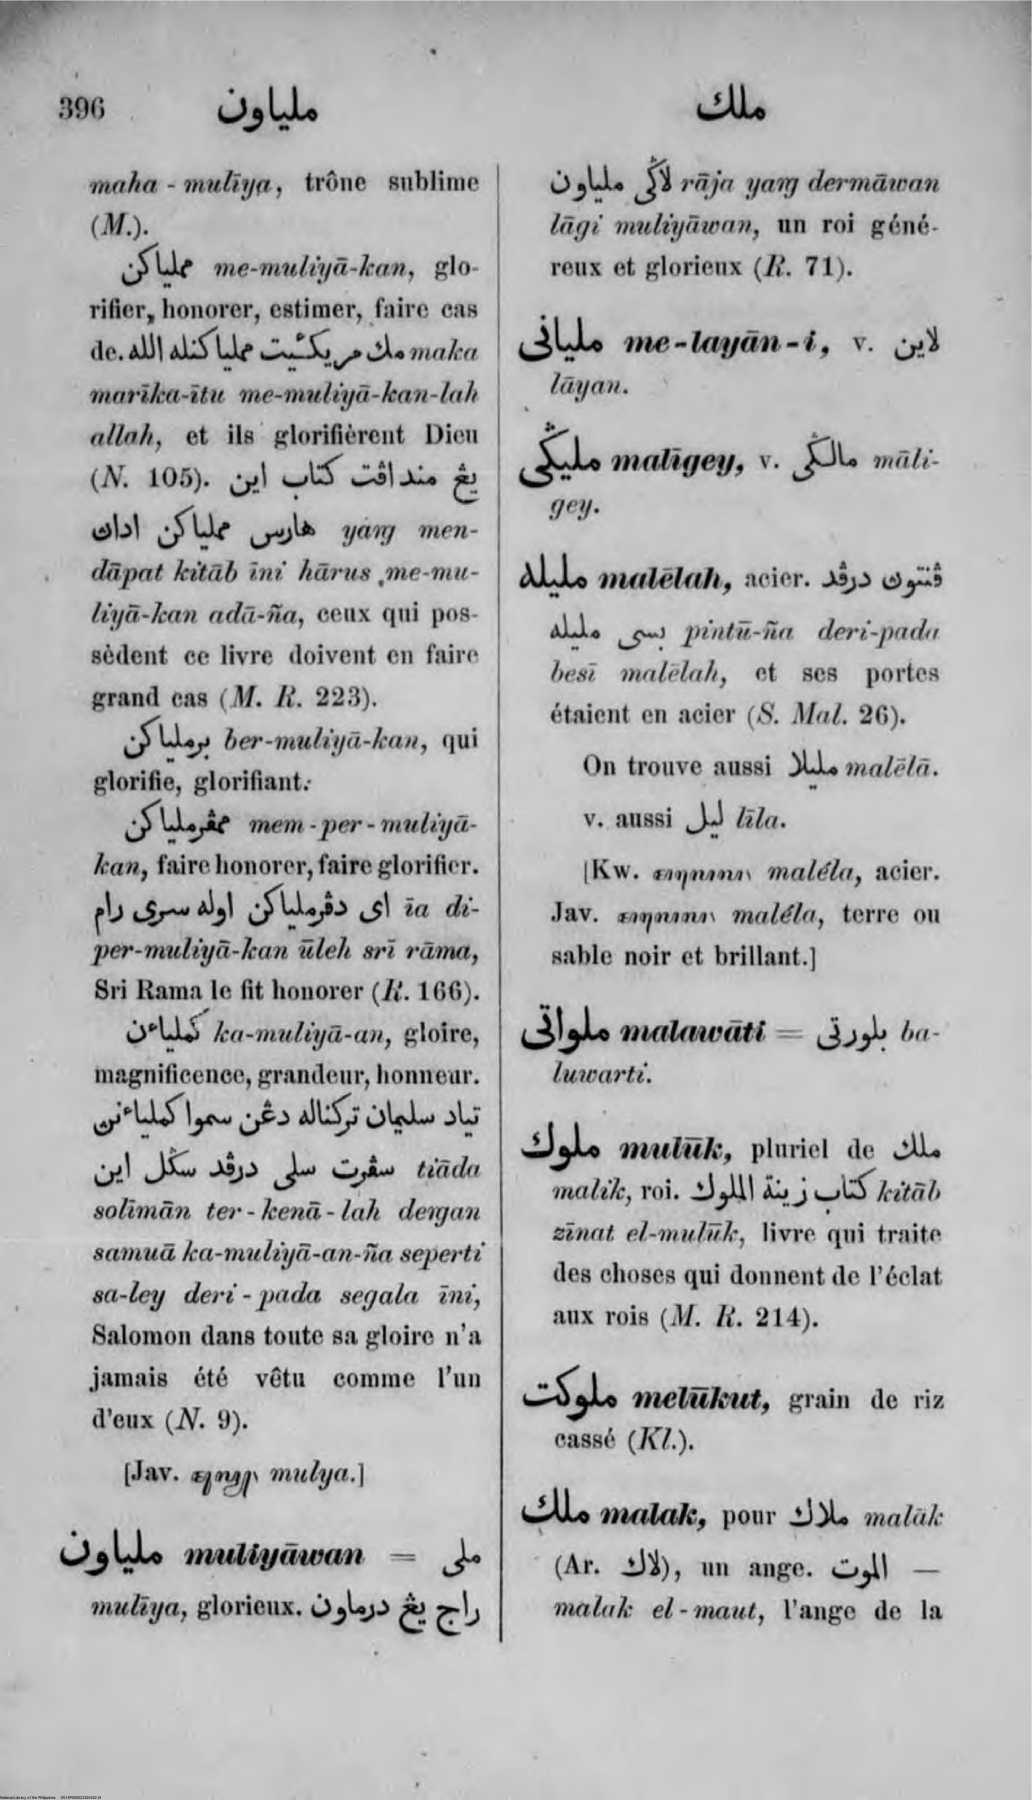 396
ملياون
ملك
maha - mulīya, trône sublime
(M.).
مملياكن me-muliyā-kan, glo-
rifier, honorer, estimer, faire cas
de. مك مريكئيت ممليا كنله الله maka
marīka-ītu me-muliyā-kan-lah
allah, et ils glorifièrent Dieu
(N. 105). يڠ منداڤت كتاب اين
هارس ممليا كن اداڽ yaṅg men-
dāpat kitāb īni hārus me-mu-
liyā-kan adā-ña, ceux qui pos-
sèdent ce livre doivent en faire
grand cas (M. R. 223).
برمليا كن ber-muliyā-kan, qui
glorifie, glorifiant.
ممڤرمليا كن mem-per-muliyā-
kan, faire honorer, faire glorifier.
اى دڤرمليا كن اوله سرى رام īa di-
per-muliyā-kan ūleh srī rāma,
Sri Rama le fit honorer (R. 166).
كمليا۠ن ka-muliyā-an, gloire,
magnificence, grandeur, honneur.
تياد سليمان تركناله دڠن سموا كملياءنڽ
سڤرت سلى درڤد سݢل اين tiāda
solīmān ter-kenā-lah deṅgan
samuā ka-muliyā-an-ña seperti
sa-ley deri-pada segala īni,
Salomon dans toute sa gloire n'a
jamais été vêtu comme l'un
d'eux (N. 9).
[Jav. mulya.]
ملياون muliyāwan = ملى
mulīya, glorieux. راج يڠ درماون
لاݢى ملياون rāja yaṅg dermāwan
lāgi muliyāwan, un roi géné-
reux et glorieux (R. 71).
مليانى me-layān-i, v. لاين
lāyan.
مليݢى malīgey, v. مالݢى māli-
gey.
مليله malēlah, acier. ڤنتون درڤد
بسى مليله pintū-ña deri-pada
besī malēlah, et ses portes
étaient en acier (S. Mal. 26).
On trouve aussi مليلا malēlā.
v. aussi ليل līla.
[Kw. maléla, acier.
Jav. maléla, terre ou
sable noir et brillant.]
ملواتى malawāti = بلورتى ba-
luwarti.
ملوك mulūk, pluriel de ملك
malik, roi. كتاب زينة الملوك kitāb
zīnat el-mulūk, livre qui traite
des choses qui donnent de l'éclat
aux rois (M. R. 214).
ملوكت melūkut, grain de riz
cassé (Kl.).
ملك malak, pour ملاك malāk
(Ar. لاك), un ange. الموت —
malak el-maut, l'ange de la